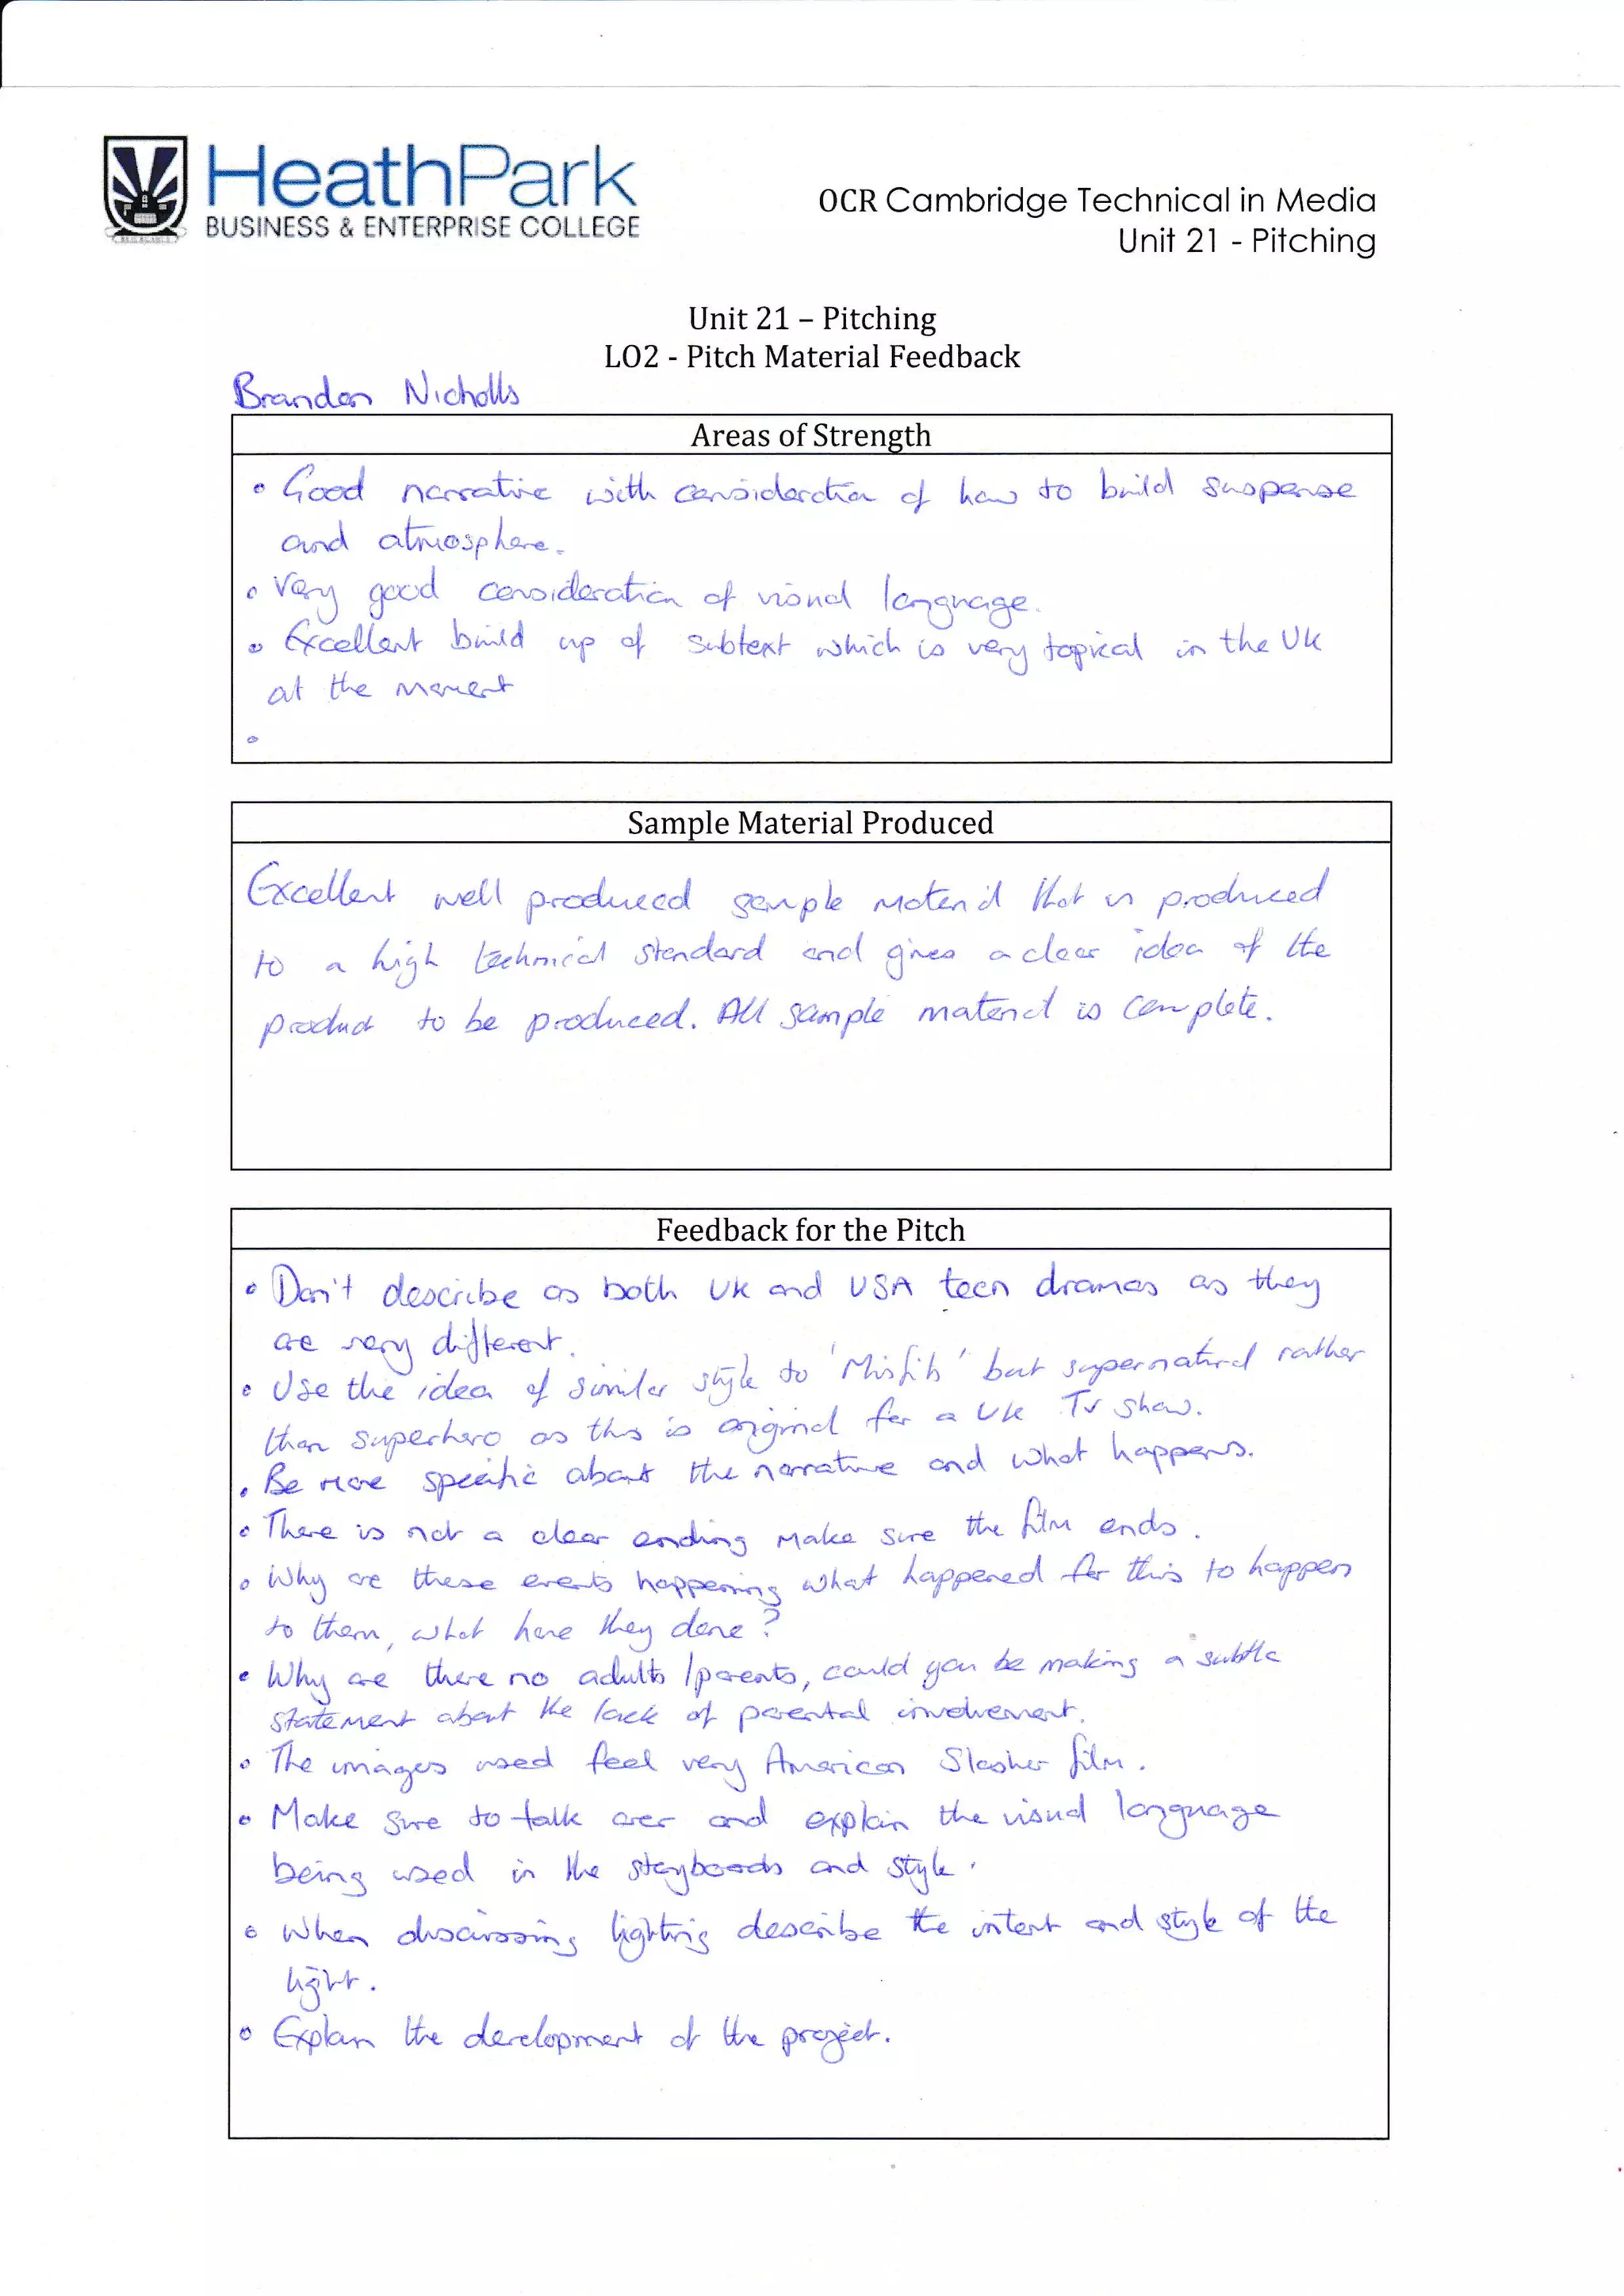 HeathPark
BUSINESS & ENTERPRISE COLLEGE
OCR Cambridge Technical in Media
Unit 21 - Pitching
Unit 21 – Pitching
LO2 - Pitch Material Feedback
Brandon Nicholls
Areas of Strength
• Good narrative with consideration of how to build suspense
and atmosphere.
• Very good consideration of visual language.
• Excellent build up of subtext which is very topical in the UK
at the moment
•
Sample Material Produced
Excellent well produced sample material that is produced
to a high technical standard and gives a clear idea of the
product to be produced. All sample material is complete.
Feedback for the Pitch
• Don't describe as both UK and USA teen dramas as they
are very different.
• Use the idea of similar style to 'Misfits' but supernatural rather
than superhero as this is original for a UK TV show.
• Be more specific about the narrative and what happens.
• There is not a clear ending make sure the film ends.
• Why are these events happening what happened for this to happen
to them, what have they done?
• Why are there no adults/parents, could you be making a subtle
statement about the lack of parental involvement.
• The images used feel very American Slasher film.
• Make sure to talk over and explain the visual language
being used in the storyboards and style.
• When discussing lighting describe the intent and style of the
light.
• Explain the development of the project.